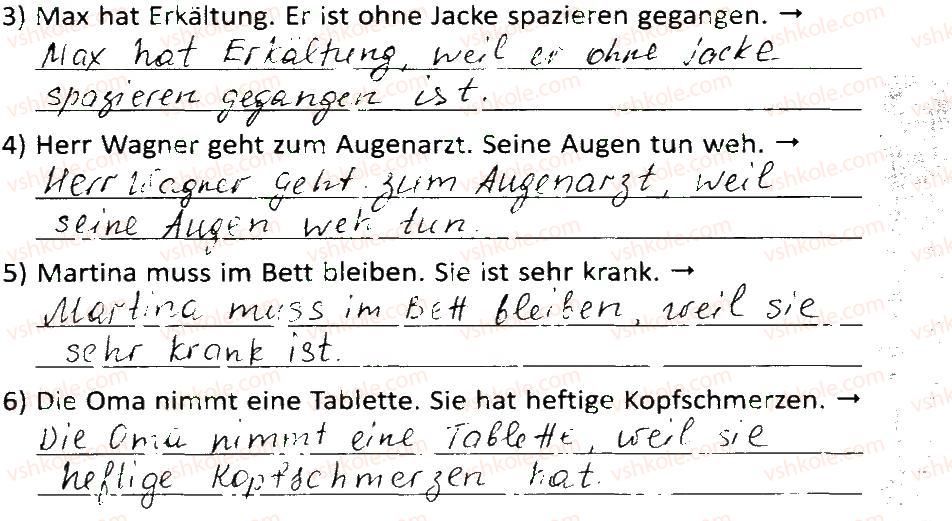 3) Max hat Erkältung. Er ist ohne Jacke spazieren gegangen. →
Max hat Erkältung, weil er ohne jacke
spazieren gegangen ist.
4) Herr Wagner geht zum Augenarzt. Seine Augen tun weh. →
Herr Wagner geht zum Augenarzt, weil
seine Augen weh tun.
5) Martina muss im Bett bleiben. Sie ist sehr krank. →
Martina muss im Bett bleiben, weil sie
sehr krank ist.
6) Die Oma nimmt eine Tablette. Sie hat heftige Kopfschmerzen. →
Die Oma nimmt eine Tablette, weil sie
heftige Kopfschmerzen hat.